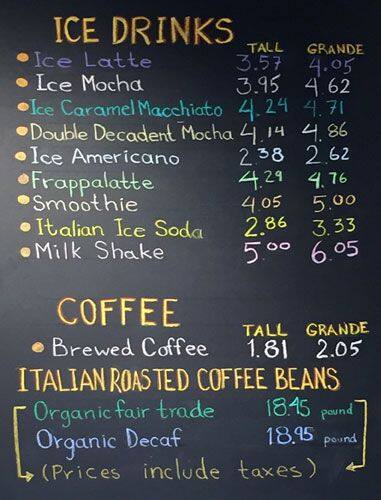 ICE DRINKS TALL GRANDE
Ice Latte 3.57 4.05
Ice Mocha 3.95 4.62
Ice Caramel Macchiato 4.24 4.71
Double Decadent Mocha 4.14 4.86
Ice Americano 2.38 2.62
Frappalatte 4.29 4.76
Smoothie 4.05 5.00
Italian Ice Soda 2.86 3.33
Milk Shake 5.00 6.05
COFFEE TALL GRANDE
Brewed Coffee 1.81 2.05
ITALIAN ROASTED COFFEE BEANS
Organic fair trade 18.45 pound
Organic Decaf 18.95 pound
(Prices include taxes)